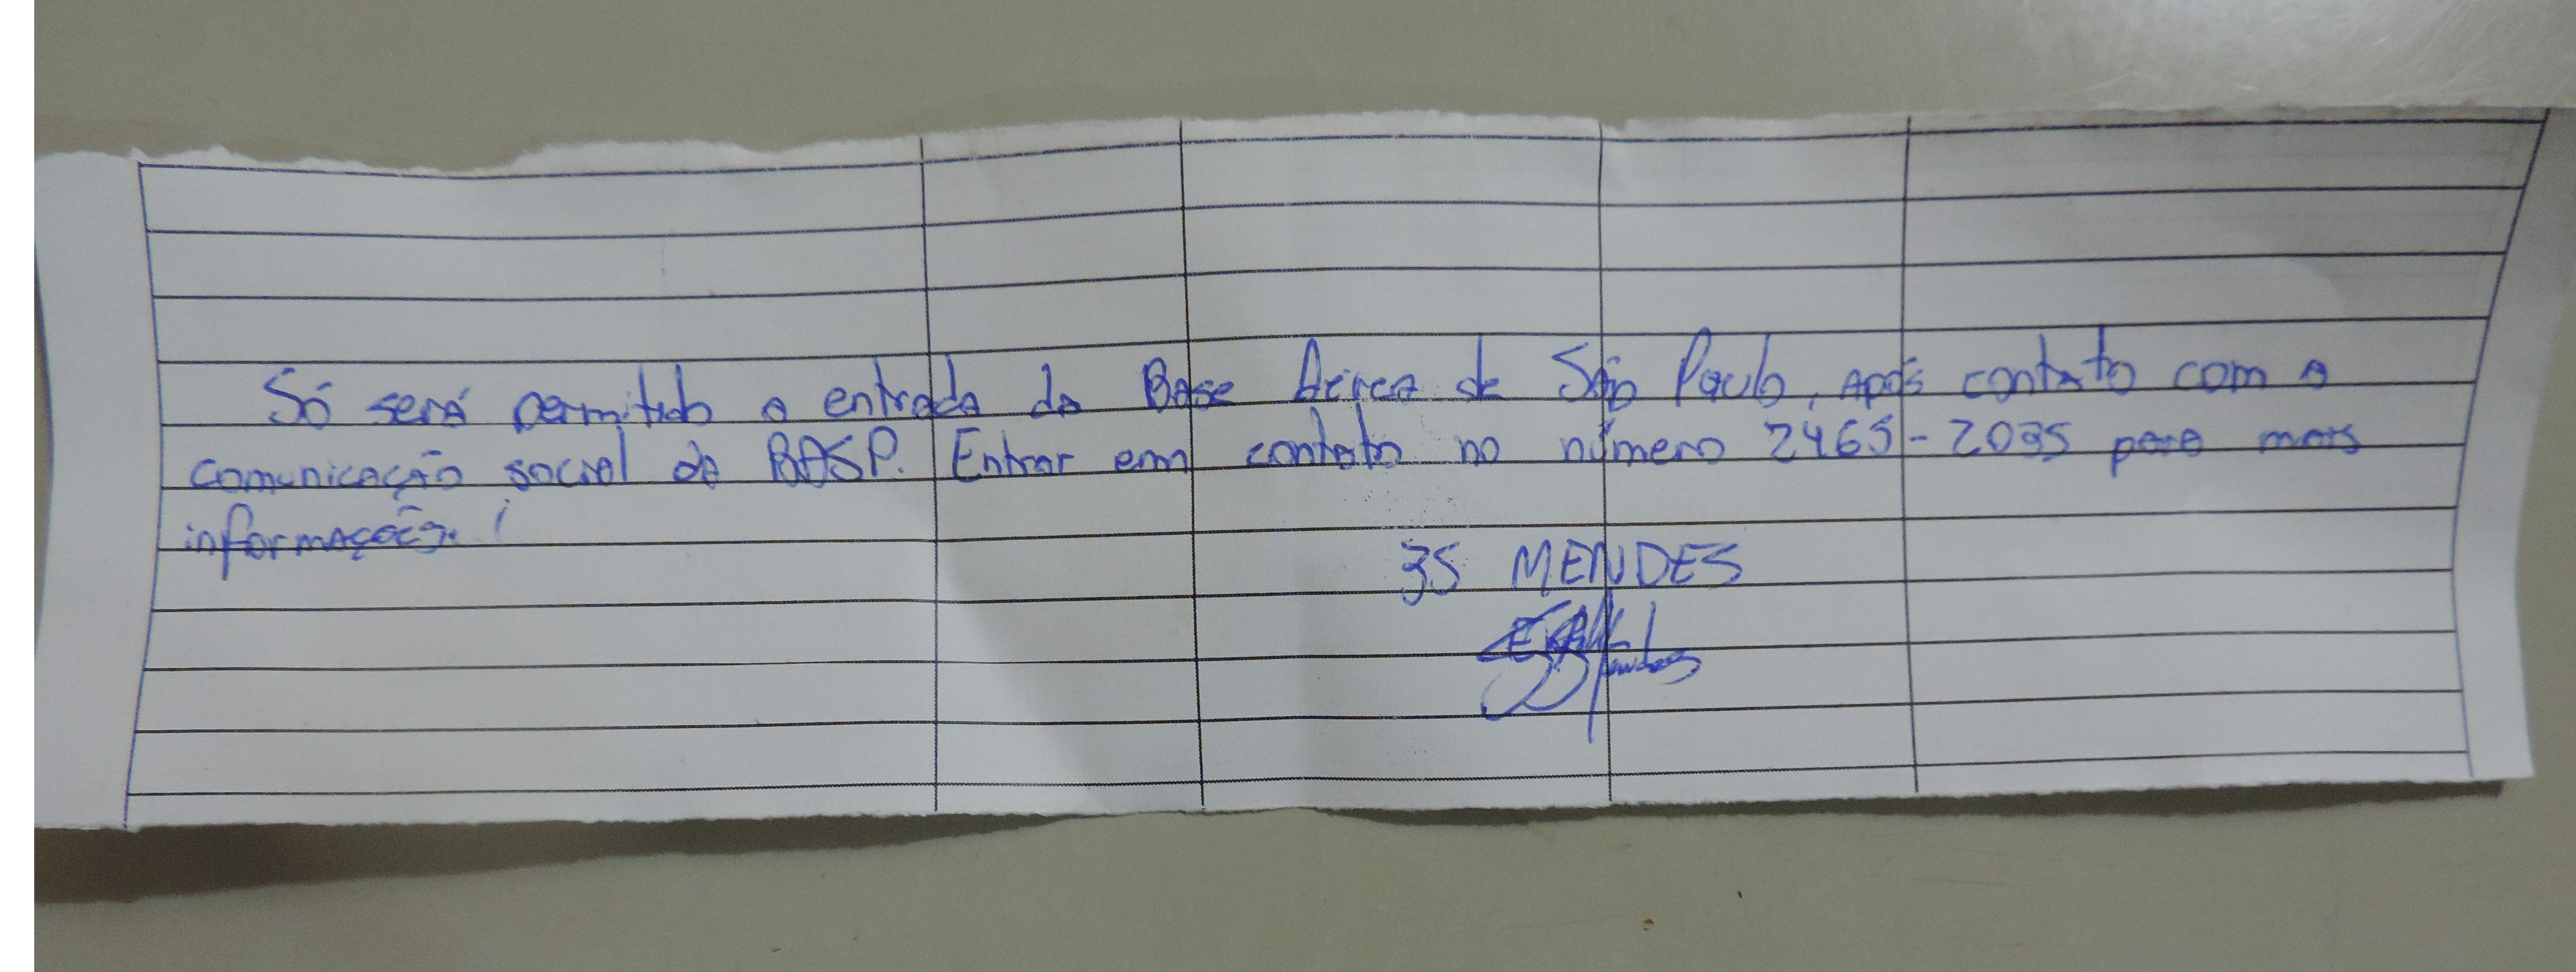 Só será permitido a entrada da Base Aérea de São Paulo, após contato com a
comunicação social da BASP. Entrar em contato no número 2465-2035 para mais
informações.
3S MENDES